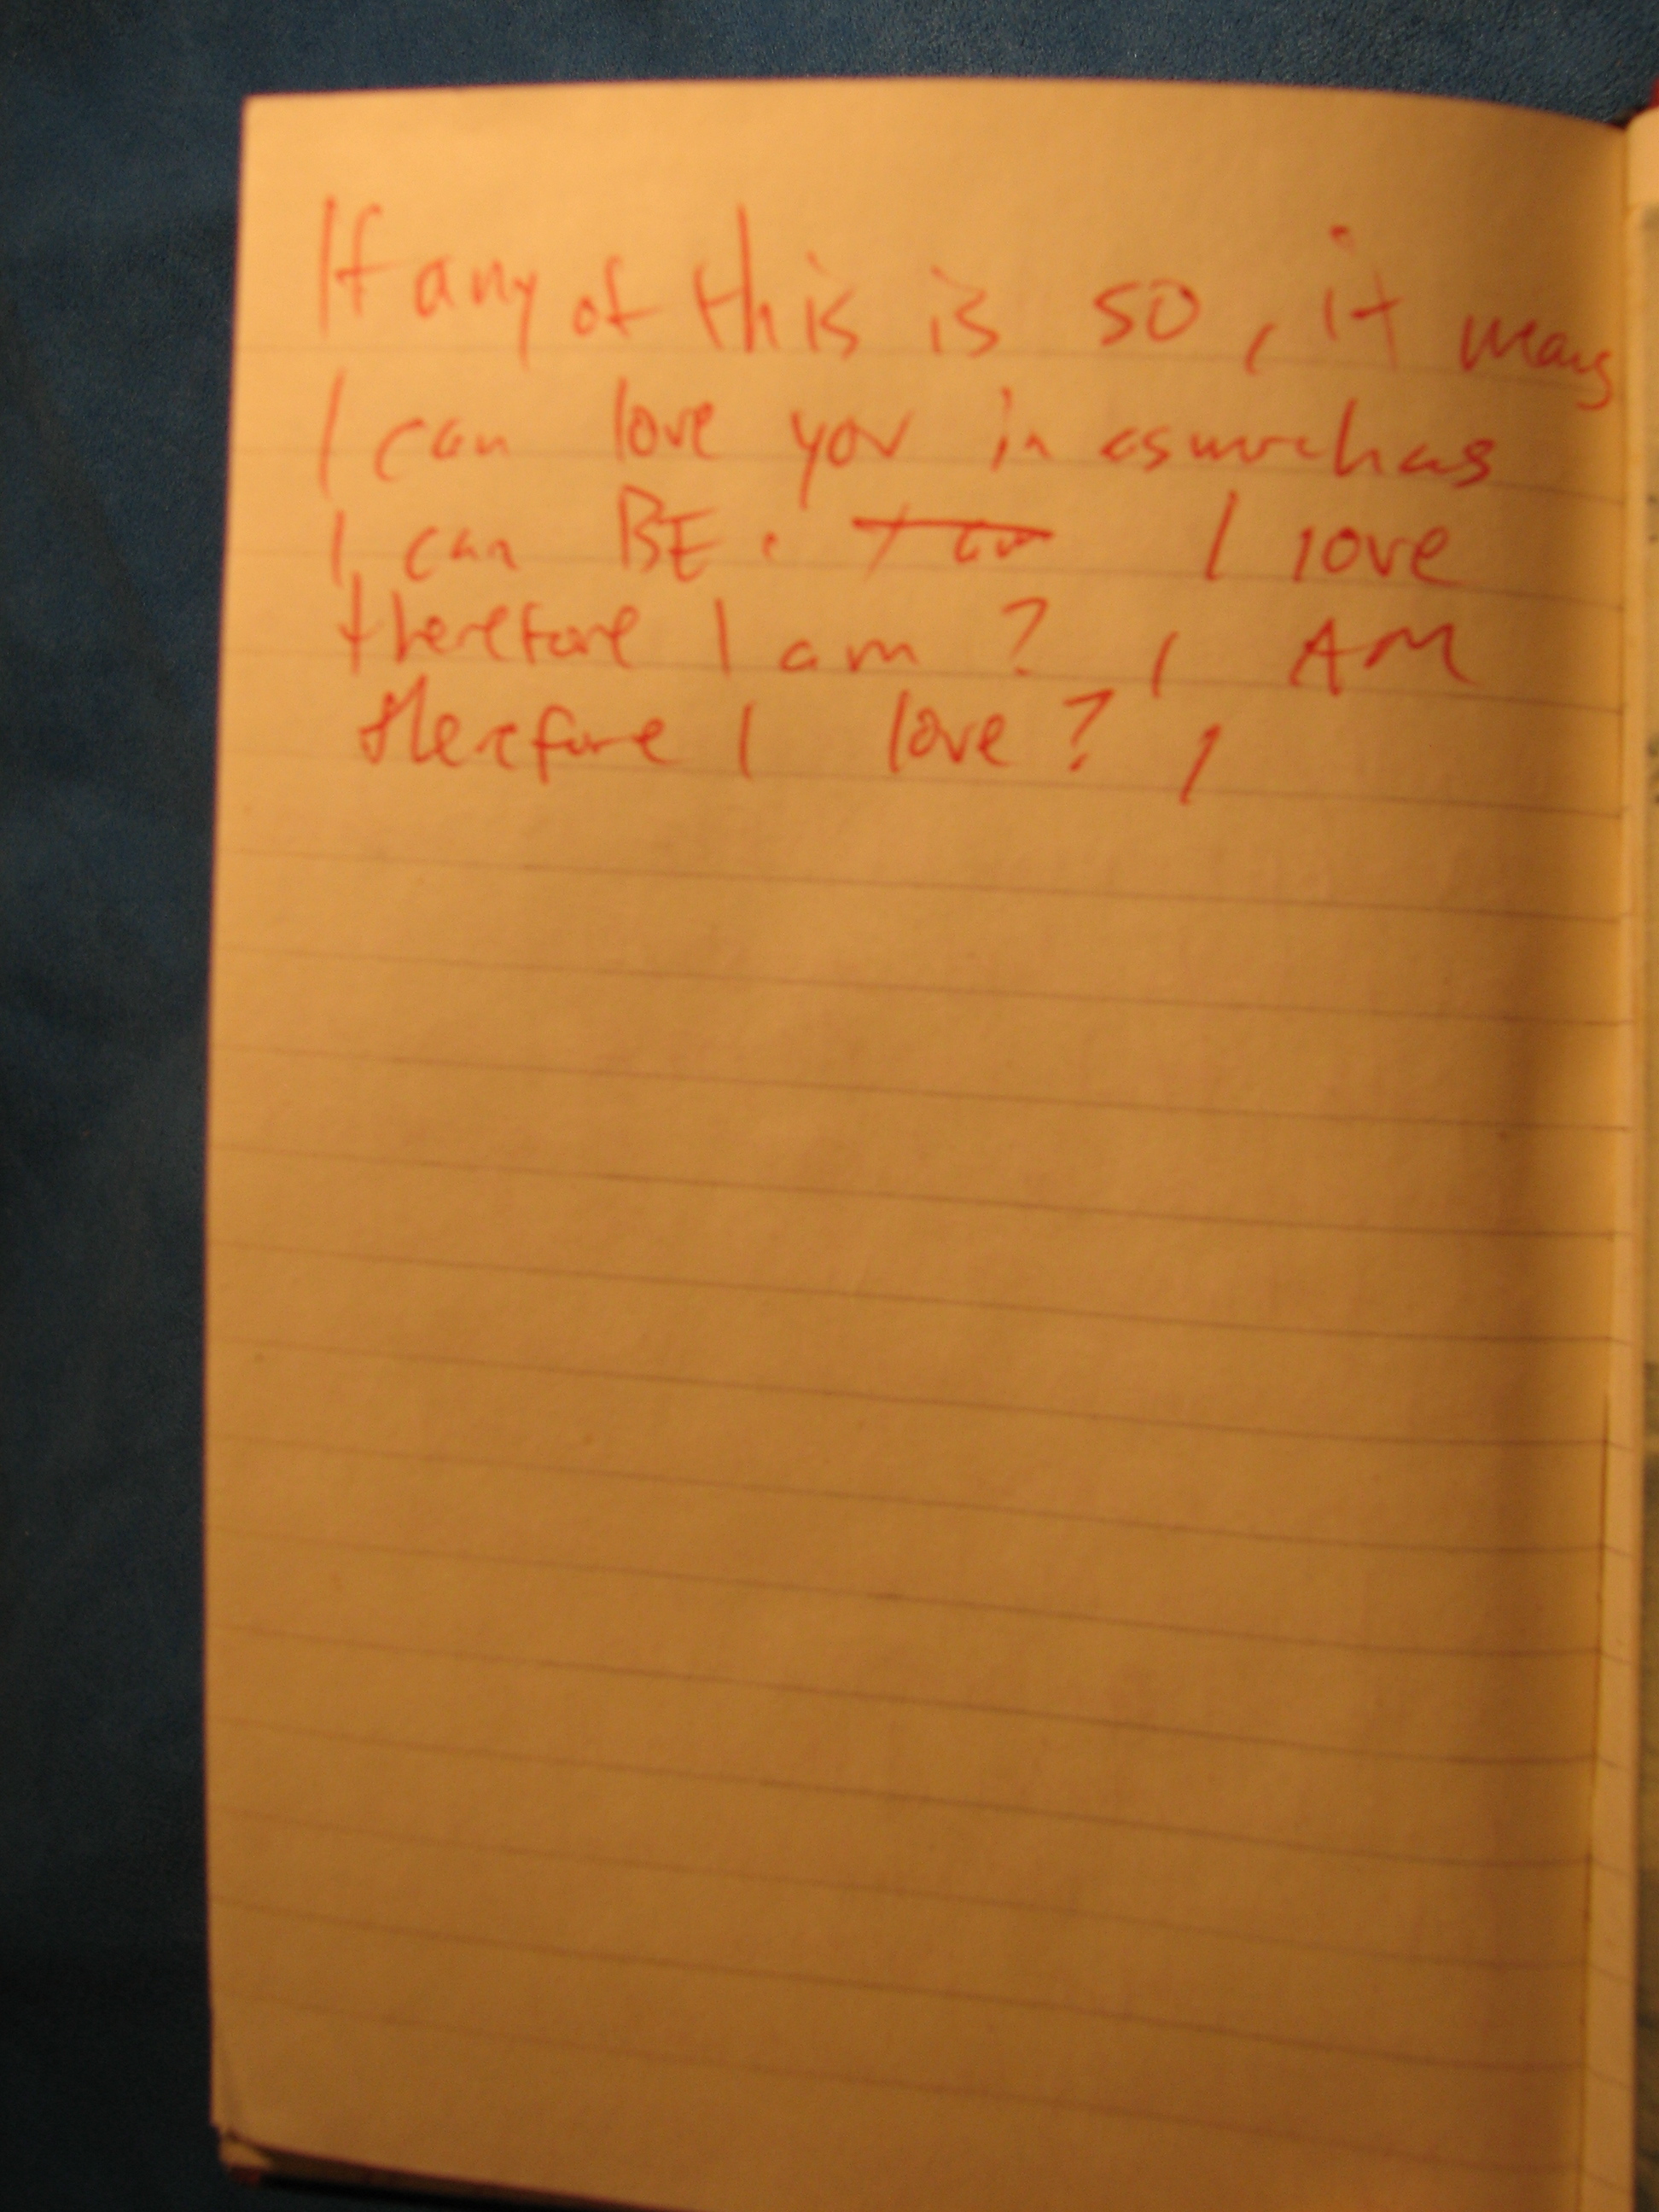 If any of this is so, it means
I can love you in asmuchas
I can BE. I love
therefore I am? I AM
therefore I love? I